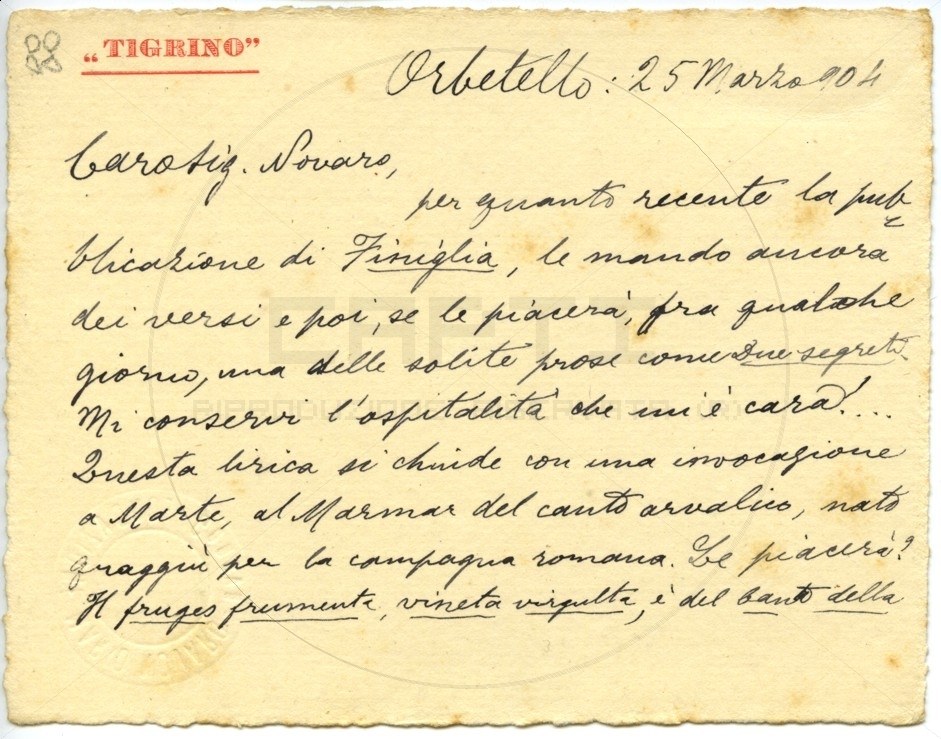 „TIGRINO”
Orbetello: 25 Marzo 904
Caro Sig. Novaro,
per quanto recente la pub-
blicazione di Finiglia, le mando ancora
dei versi e poi, se le piacerà, fra qualche
giorno, una delle solite prose come Due segreti.
Mi conservi l'ospitalità che mi è cara!...
Questa lirica si chiude con una invocazione
a Marte, al Marmar del canto arvalico, nato
quaggiù per la campagna romana. Le piacerà?
Il fruges frumenta, vineta virgulta, è del canto della